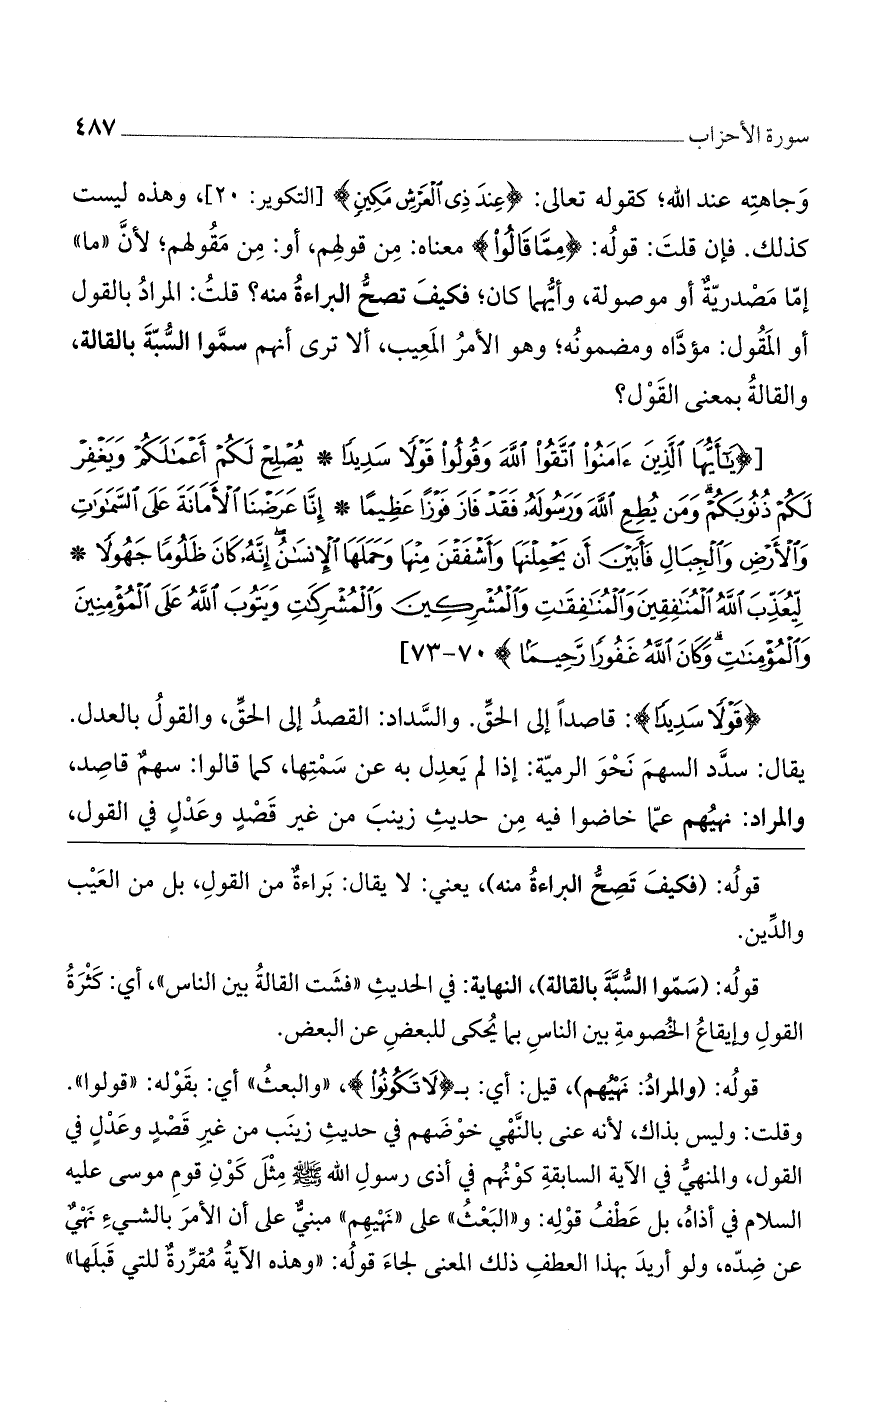 سورة الأحزاب ــــــــــــــــــــــــــــــــــــــــ ٤٨٧
وَجاهتِه عند الله؛ كقوله تعالى: ﴿عِندَ ذِى ٱلْعَرْشِ مَكِينٍ﴾ [التكوير: ٢٠]، وهذه ليست
كذلك. فإن قلتَ: قولُه: ﴿مِمَّا قَالُوا۟﴾ معناه: مِن قولِهم، أو: مِن مَقُولهم؛ لأنَّ «ما»
إمّا مَصْدريّةٌ أو موصولة، وأيُّهما كان؛ فكيفَ تصحُّ البراءةُ منه؟ قلتُ: المرادُ بالقول
أو المَقُول: مؤدَّاه ومضمونُه؛ وهو الأمرُ المَعِيب، ألا ترى أنهم سمَّوا السُّبّةَ بالقالة،
والقالةُ بمعنى القَوْل؟
[﴿يَٰٓأَيُّهَا ٱلَّذِينَ ءَامَنُوا۟ ٱتَّقُوا۟ ٱللَّهَ وَقُولُوا۟ قَوْلًا سَدِيدًا * يُصْلِحْ لَكُمْ أَعْمَٰلَكُمْ وَيَغْفِرْ
لَكُمْ ذُنُوبَكُمْ ۗ وَمَن يُطِعِ ٱللَّهَ وَرَسُولَهُۥ فَقَدْ فَازَ فَوْزًا عَظِيمًا * إِنَّا عَرَضْنَا ٱلْأَمَانَةَ عَلَى ٱلسَّمَٰوَٰتِ
وَٱلْأَرْضِ وَٱلْجِبَالِ فَأَبَيْنَ أَن يَحْمِلْنَهَا وَأَشْفَقْنَ مِنْهَا وَحَمَلَهَا ٱلْإِنسَٰنُ ۖ إِنَّهُۥ كَانَ ظَلُومًا جَهُولًا *
لِّيُعَذِّبَ ٱللَّهُ ٱلْمُنَٰفِقِينَ وَٱلْمُنَٰفِقَٰتِ وَٱلْمُشْرِكِينَ وَٱلْمُشْرِكَٰتِ وَيَتُوبَ ٱللَّهُ عَلَى ٱلْمُؤْمِنِينَ
وَٱلْمُؤْمِنَٰتِ ۗ وَكَانَ ٱللَّهُ غَفُورًا رَّحِيمًا﴾ ٧٠-٧٣]
﴿قَوْلًا سَدِيدًا﴾: قاصداً إلى الحقِّ. والسَّداد: القصدُ إلى الحقِّ، والقولُ بالعدل.
يقال: سدَّد السهمَ نَحْوَ الرميّة: إذا لم يَعدِل به عن سَمْتِها، كما قالوا: سهمٌ قاصِد،
والمراد: نهيُهم عمّا خاضوا فيه مِن حديثِ زينبَ من غير قَصْدٍ وعَدْلٍ في القول،
قولُه: (فكيفَ تَصِحُّ البراءةُ منه)، يعني: لا يقال: بَراءةٌ من القولِ، بل من العَيْب
والدِّين.
قولُه: (سَمّوا السُّبَّةَ بالقالة)، النهاية: في الحديثِ «فشَت القالةُ بين الناس»، أي: كَثْرَةُ
القولِ وإيقاعُ الخُصومةِ بين الناسِ بما يُحكى للبعضِ عن البعض.
قولُه: (والمرادُ: نَهْيُهم)، قيل: أي: بـ﴿لَا تَكُونُوا۟﴾، «والبعثُ» أي: بقَوْله: «قولوا».
وقلت: وليس بذاك، لأنه عنى بالنَّهْي خوْضَهم في حديثِ زينَب من غيرِ قَصْدٍ وعَدْلٍ في
القول، والمنهيُّ في الآية السابقةِ كوْنُهم في أذى رسولِ الله ﷺ مِثْلَ كَوْنِ قومِ موسى عليه
السلام في أذاهُ، بل عَطْفُ قوْلِه: و«البَعْثُ» على «نَهْيِهم» مبنيٌّ على أن الأمرَ بالشيءِ نَهْيٌ
عن ضِدّه، ولو أريدَ بهذا العطفِ ذلك المعنى لجاءَ قولُه: «وهذه الآيةُ مُقرِّرةٌ للتي قَبلَها»